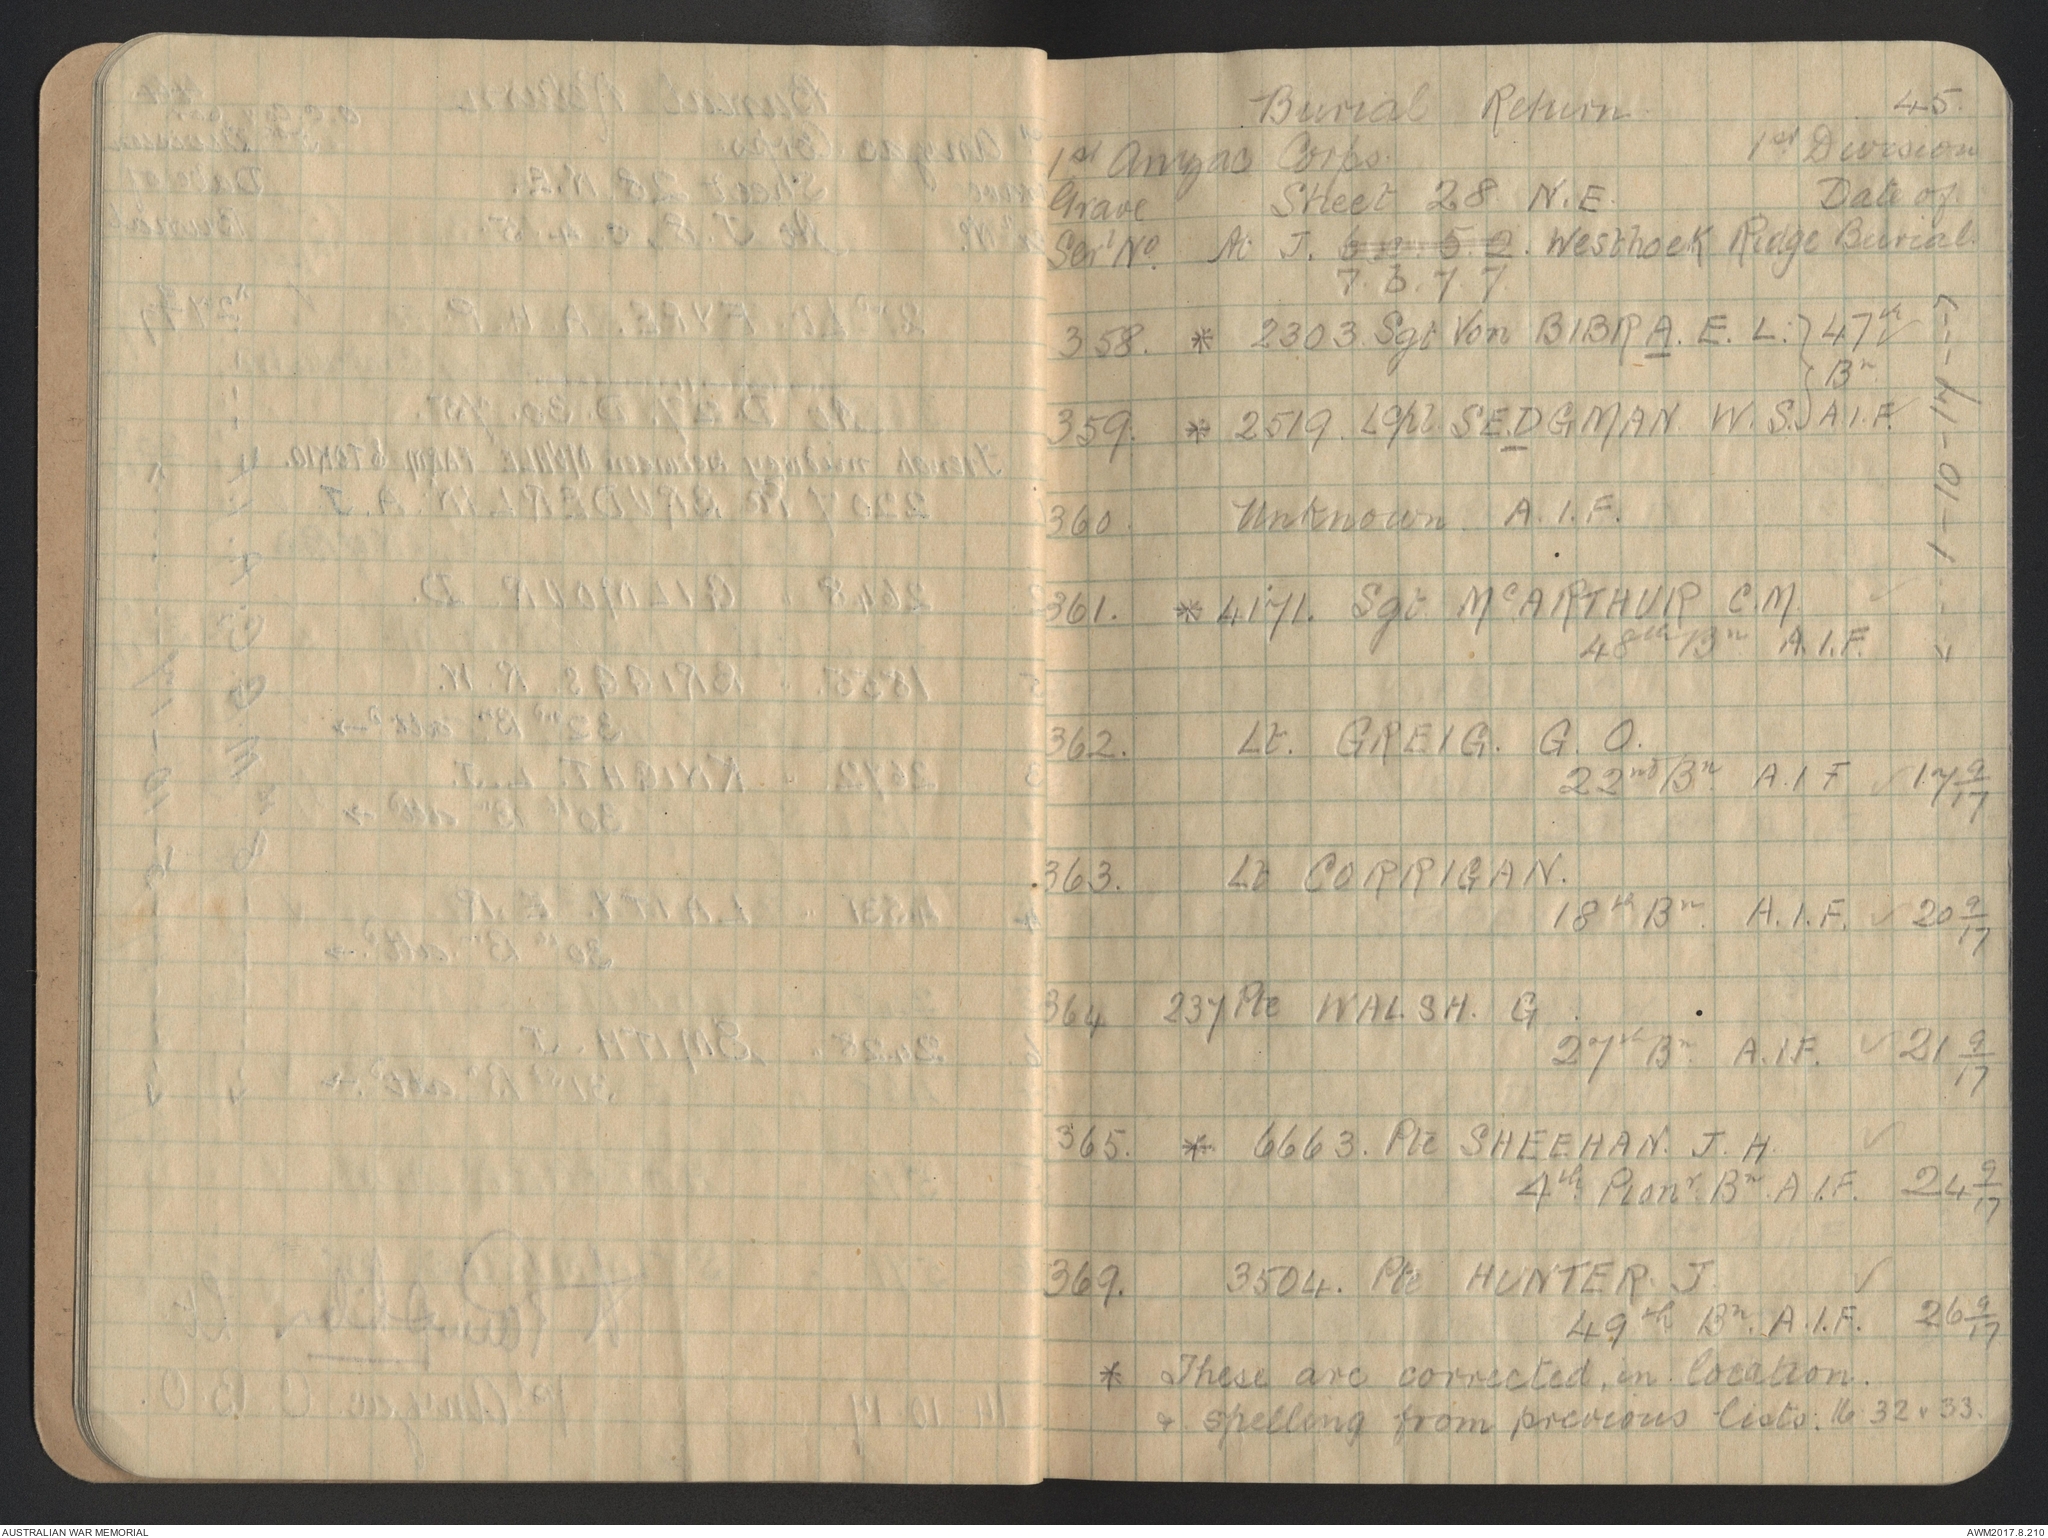 Burial Return. 45.
1st Anzac Corps. 1st Division
Grave Sheet 28 N.E. Date of
Serl No. At J. 7.b.7.7. Westhoek Ridge Burial.
358. * 2303. Sgt Von BIBRA. E. L. } 47th ✓
Bn
359. * 2519. L/Cpl. SEDGMAN. W. S. } A.I.F. ✓
<--- 1-10-17 --->
360. Unknown A.I.F.
361. * 4171. Sgt McARTHUR C.M. ✓
48th Bn A.I.F.
362. Lt. GREIG. G. O.
22nd Bn. A.I.F ✓ 17 9/17
363. Lt CORRIGAN.
18th Bn. A.I.F. ✓ 20 9/17
364 237 Pte WALSH. G.
27th Bn. A.I.F. ✓ 21 9/17
365. * 6663. Pte SHEEHAN. J. H. ✓
4th Pionr. Bn. A.I.F. 24 9/17
369. 3504. Pte HUNTER. J. ✓
49th Bn. A.I.F. 26 9/17
* These are corrected in location.
& spelling from previous lists. 16 32 & 33.
AUSTRALIAN WAR MEMORIAL
AWM2017.8.210